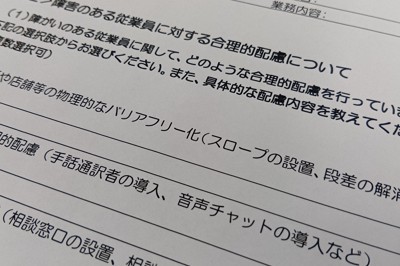 業務内容:
障害のある従業員に対する合理的配慮について
(1)障がいのある従業員に関して、どのような合理的配慮を行ってい
下記の選択肢からお選びください。また、具体的な配慮内容を教えてくだ
複数選択可)
や店舗等の物理的なバリアフリー化(スロープの設置、段差の解消
的配慮(手話通訳者の導入、音声チャットの導入など)
(相談窓口の設置、相談